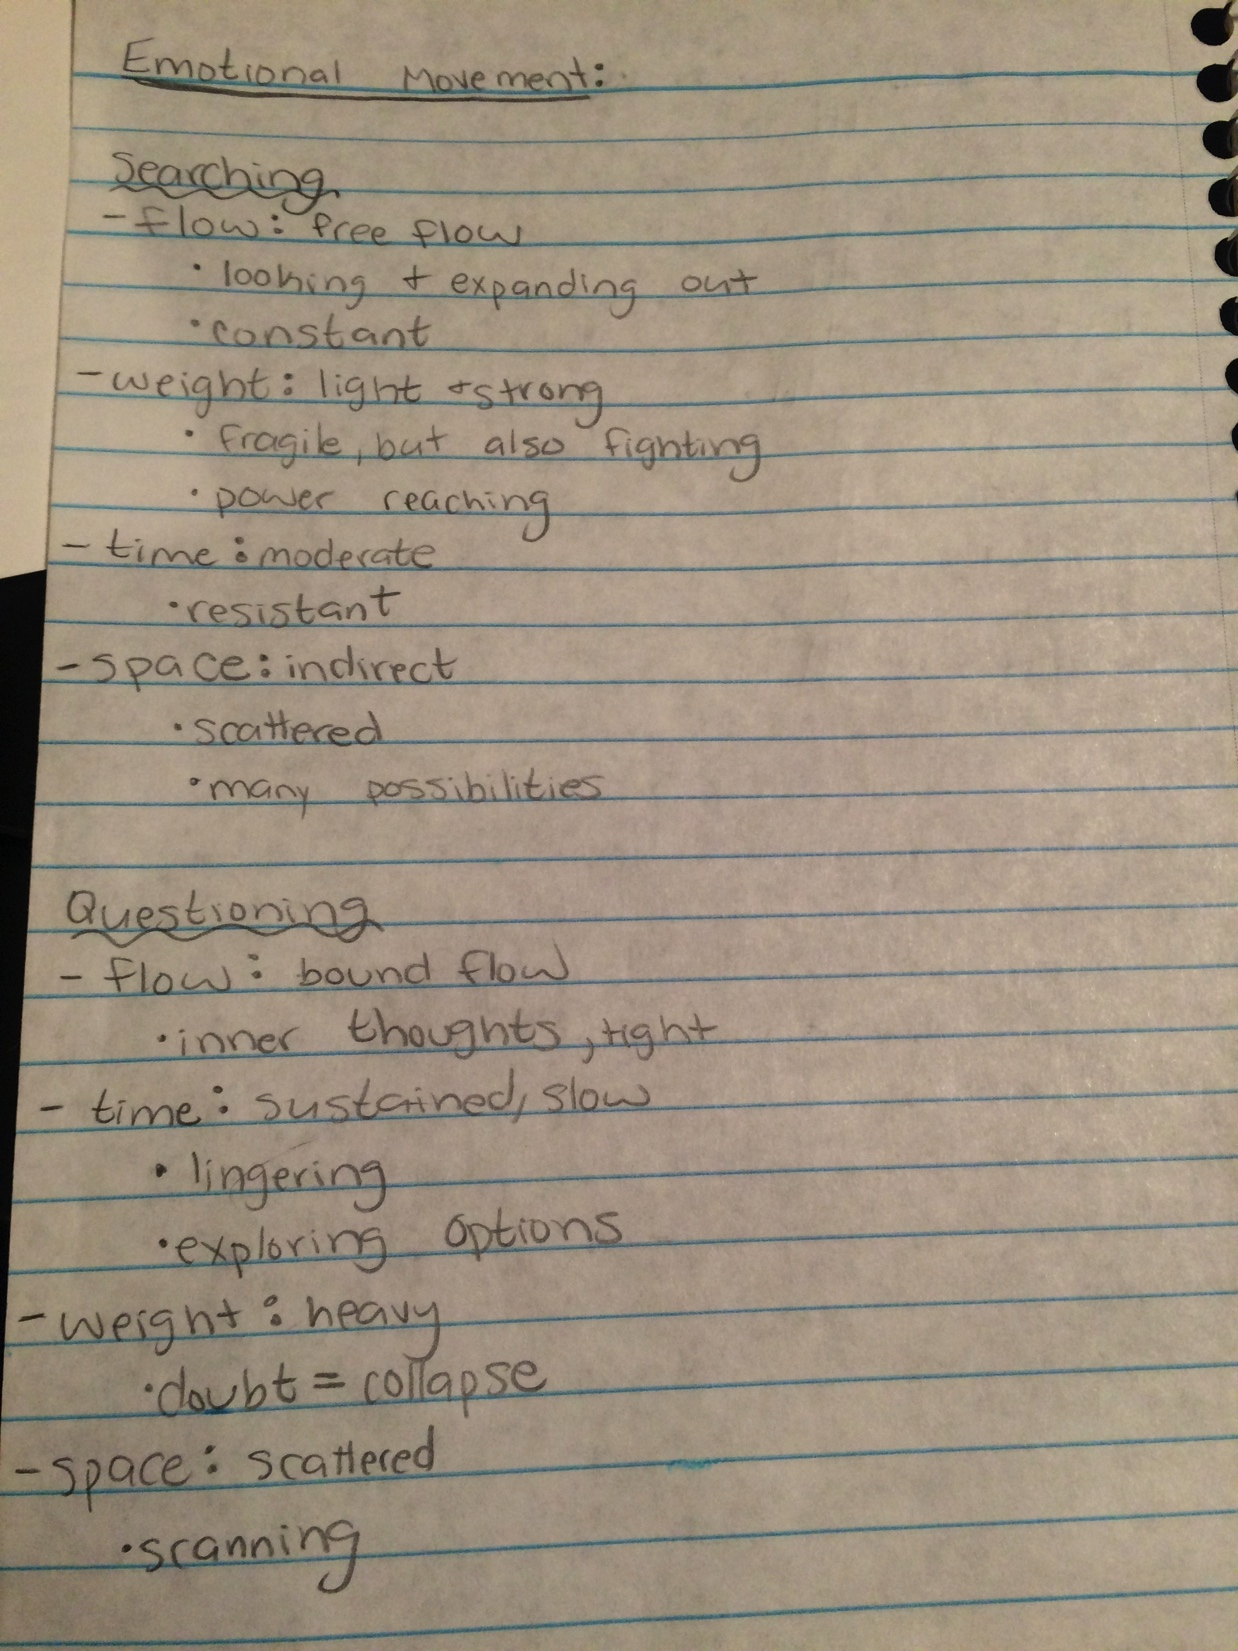 Emotional Movement:
Searching
- flow: free flow
• looking + expanding out
• constant
- weight: light + strong
• fragile, but also fighting
• power reaching
- time: moderate
• resistant
- space: indirect
• scattered
• many possibilities
Questioning
- flow: bound flow
• inner thoughts, tight
- time: sustained, slow
• lingering
• exploring options
- weight: heavy
• doubt = collapse
- space: scattered
• scanning